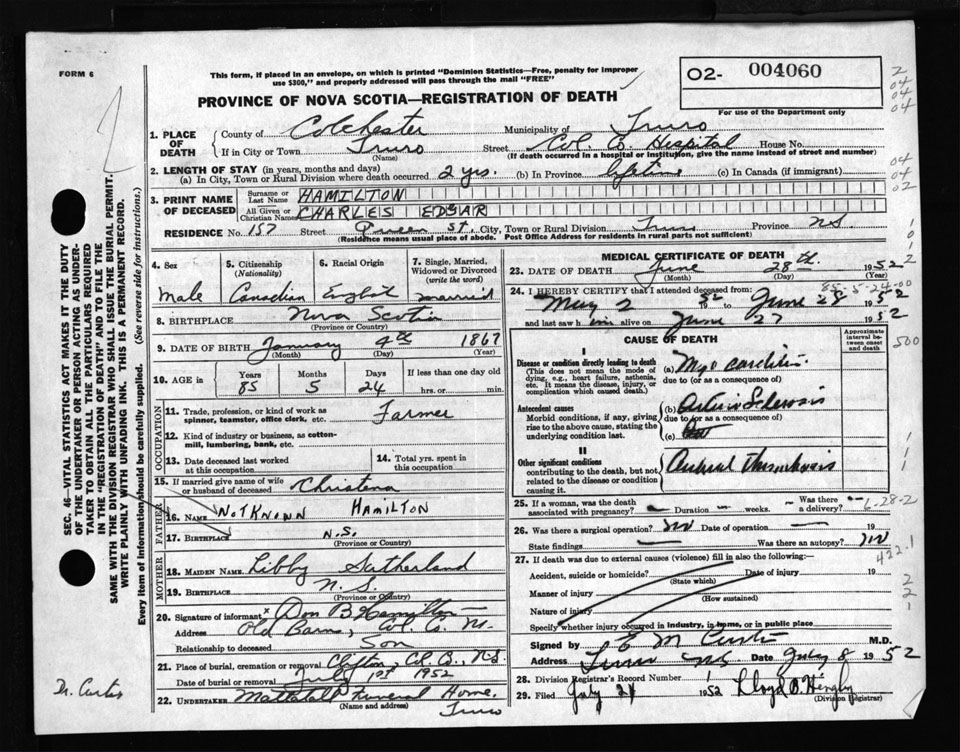 FORM 6
This form, if placed in an envelope, on which is printed "Dominion Statistics—Free, penalty for improper
use $300," and properly addressed will pass through the mail "FREE"
02- 004060
For use of the Department only
PROVINCE OF NOVA SCOTIA—REGISTRATION OF DEATH
1. PLACE OF DEATH County of Colchester Municipality of Truro
If in City or Town Truro (Name) Street Col. Co. Hospital House No.
(If death occurred in a hospital or institution, give the name instead of street and number)
2. LENGTH OF STAY (in years, months and days)
(a) In City, Town or Rural Division where death occurred 2 yrs. (b) In Province lifetime (c) In Canada (if immigrant)
3. PRINT NAME OF DECEASED Surname or Last Name HAMILTON
All Given or Christian Names CHARLES EDGAR
RESIDENCE No. 157 Street Queen St. City, Town or Rural Division Truro Province N.S.
(Residence means usual place of abode. Post Office Address for residents in rural parts not sufficient)
4. Sex Male
5. Citizenship (Nationality) Canadian
6. Racial Origin English
7. Single, Married, Widowed or Divorced (write the word) married
8. BIRTHPLACE Nova Scotia
(Province or Country)
9. DATE OF BIRTH January 4th 1867
(Month) (Day) (Year)
10. AGE in Years 85 Months 5 Days 24 If less than one day old hrs. or min.
OCCUPATION
11. Trade, profession, or kind of work as spinner, teamster, office clerk, etc. Farmer
12. Kind of industry or business, as cotton-mill, lumbering, bank, etc.
13. Date deceased last worked at this occupation
14. Total yrs. spent in this occupation
15. If married give name of wife or husband of deceased Christena
FATHER
16. NAME NOT KNOWN HAMILTON
17. BIRTHPLACE N.S.
(Province or Country)
MOTHER
18. MAIDEN NAME Libby Sutherland
19. BIRTHPLACE N.S.
(Province or Country)
20. Signature of informant x Don B Hamilton
Address Old Barns, Col. Co. N.S.
Relationship to deceased Son
21. Place of burial, cremation or removal Clifton, Col. Co., N.S.
Date of burial or removal July 1st 1952
22. UNDERTAKER Mattatall Funeral Home,
(Name and address) Truro
MEDICAL CERTIFICATE OF DEATH
23. DATE OF DEATH June 28th 1952
(Month) (Day) (Year)
85-5-24-00
24. I HEREBY CERTIFY that I attended deceased from:
May 2 52 to June 28 1952
and last saw him alive on June 27 1952
CAUSE OF DEATH
Approximate interval between onset and death
I
Disease or condition directly leading to death
(This does not mean the mode of dying, e.g., heart failure, asthenia, etc. It means the disease, injury, or complication which caused death.)
(a) Myocarditis
due to (or as a consequence of)
Antecedent causes
Morbid conditions, if any, giving rise to the above cause, stating the underlying condition last.
(b) Arterio Sclerosis
due to (or as a consequence of)
(c)
II
Other significant conditions
contributing to the death, but not related to the disease or condition causing it.
Cerebral Thrombosis
25. If a woman, was the death associated with pregnancy? — Duration — weeks. Was there a delivery? —
6-28-2
26. Was there a surgical operation? no Date of operation — 19
State findings — Was there an autopsy? no
422.1
27. If death was due to external causes (violence) fill in also the following:
Accident, suicide or homicide? (State which) Date of injury 19
Manner of injury (How sustained)
Nature of injury
Specify whether injury occurred in industry, in home, or in public place
Signed by E M Curtis M.D.
Address Truro NS Date July 8 1952
28. Division Registrar's Record Number
29. Filed July 24 1952 (Division Registrar)
SEC. 46 VITAL STATISTICS ACT MAKES IT THE DUTY
OF THE UNDERTAKER OR PERSON ACTING AS UNDER-
TAKER TO OBTAIN ALL THE PARTICULARS REQUIRED
IN THE "REGISTRATION OF DEATH" AND TO FILE THE
SAME WITH THE DIVISION REGISTRAR WHO SHALL ISSUE THE BURIAL PERMIT.
WRITE PLAINLY WITH UNFADING INK. THIS IS A PERMANENT RECORD.
Every item of information should be carefully supplied. (See reverse side for instructions.)
Dr. Curtis
2
04
04
04
04
04
02
500